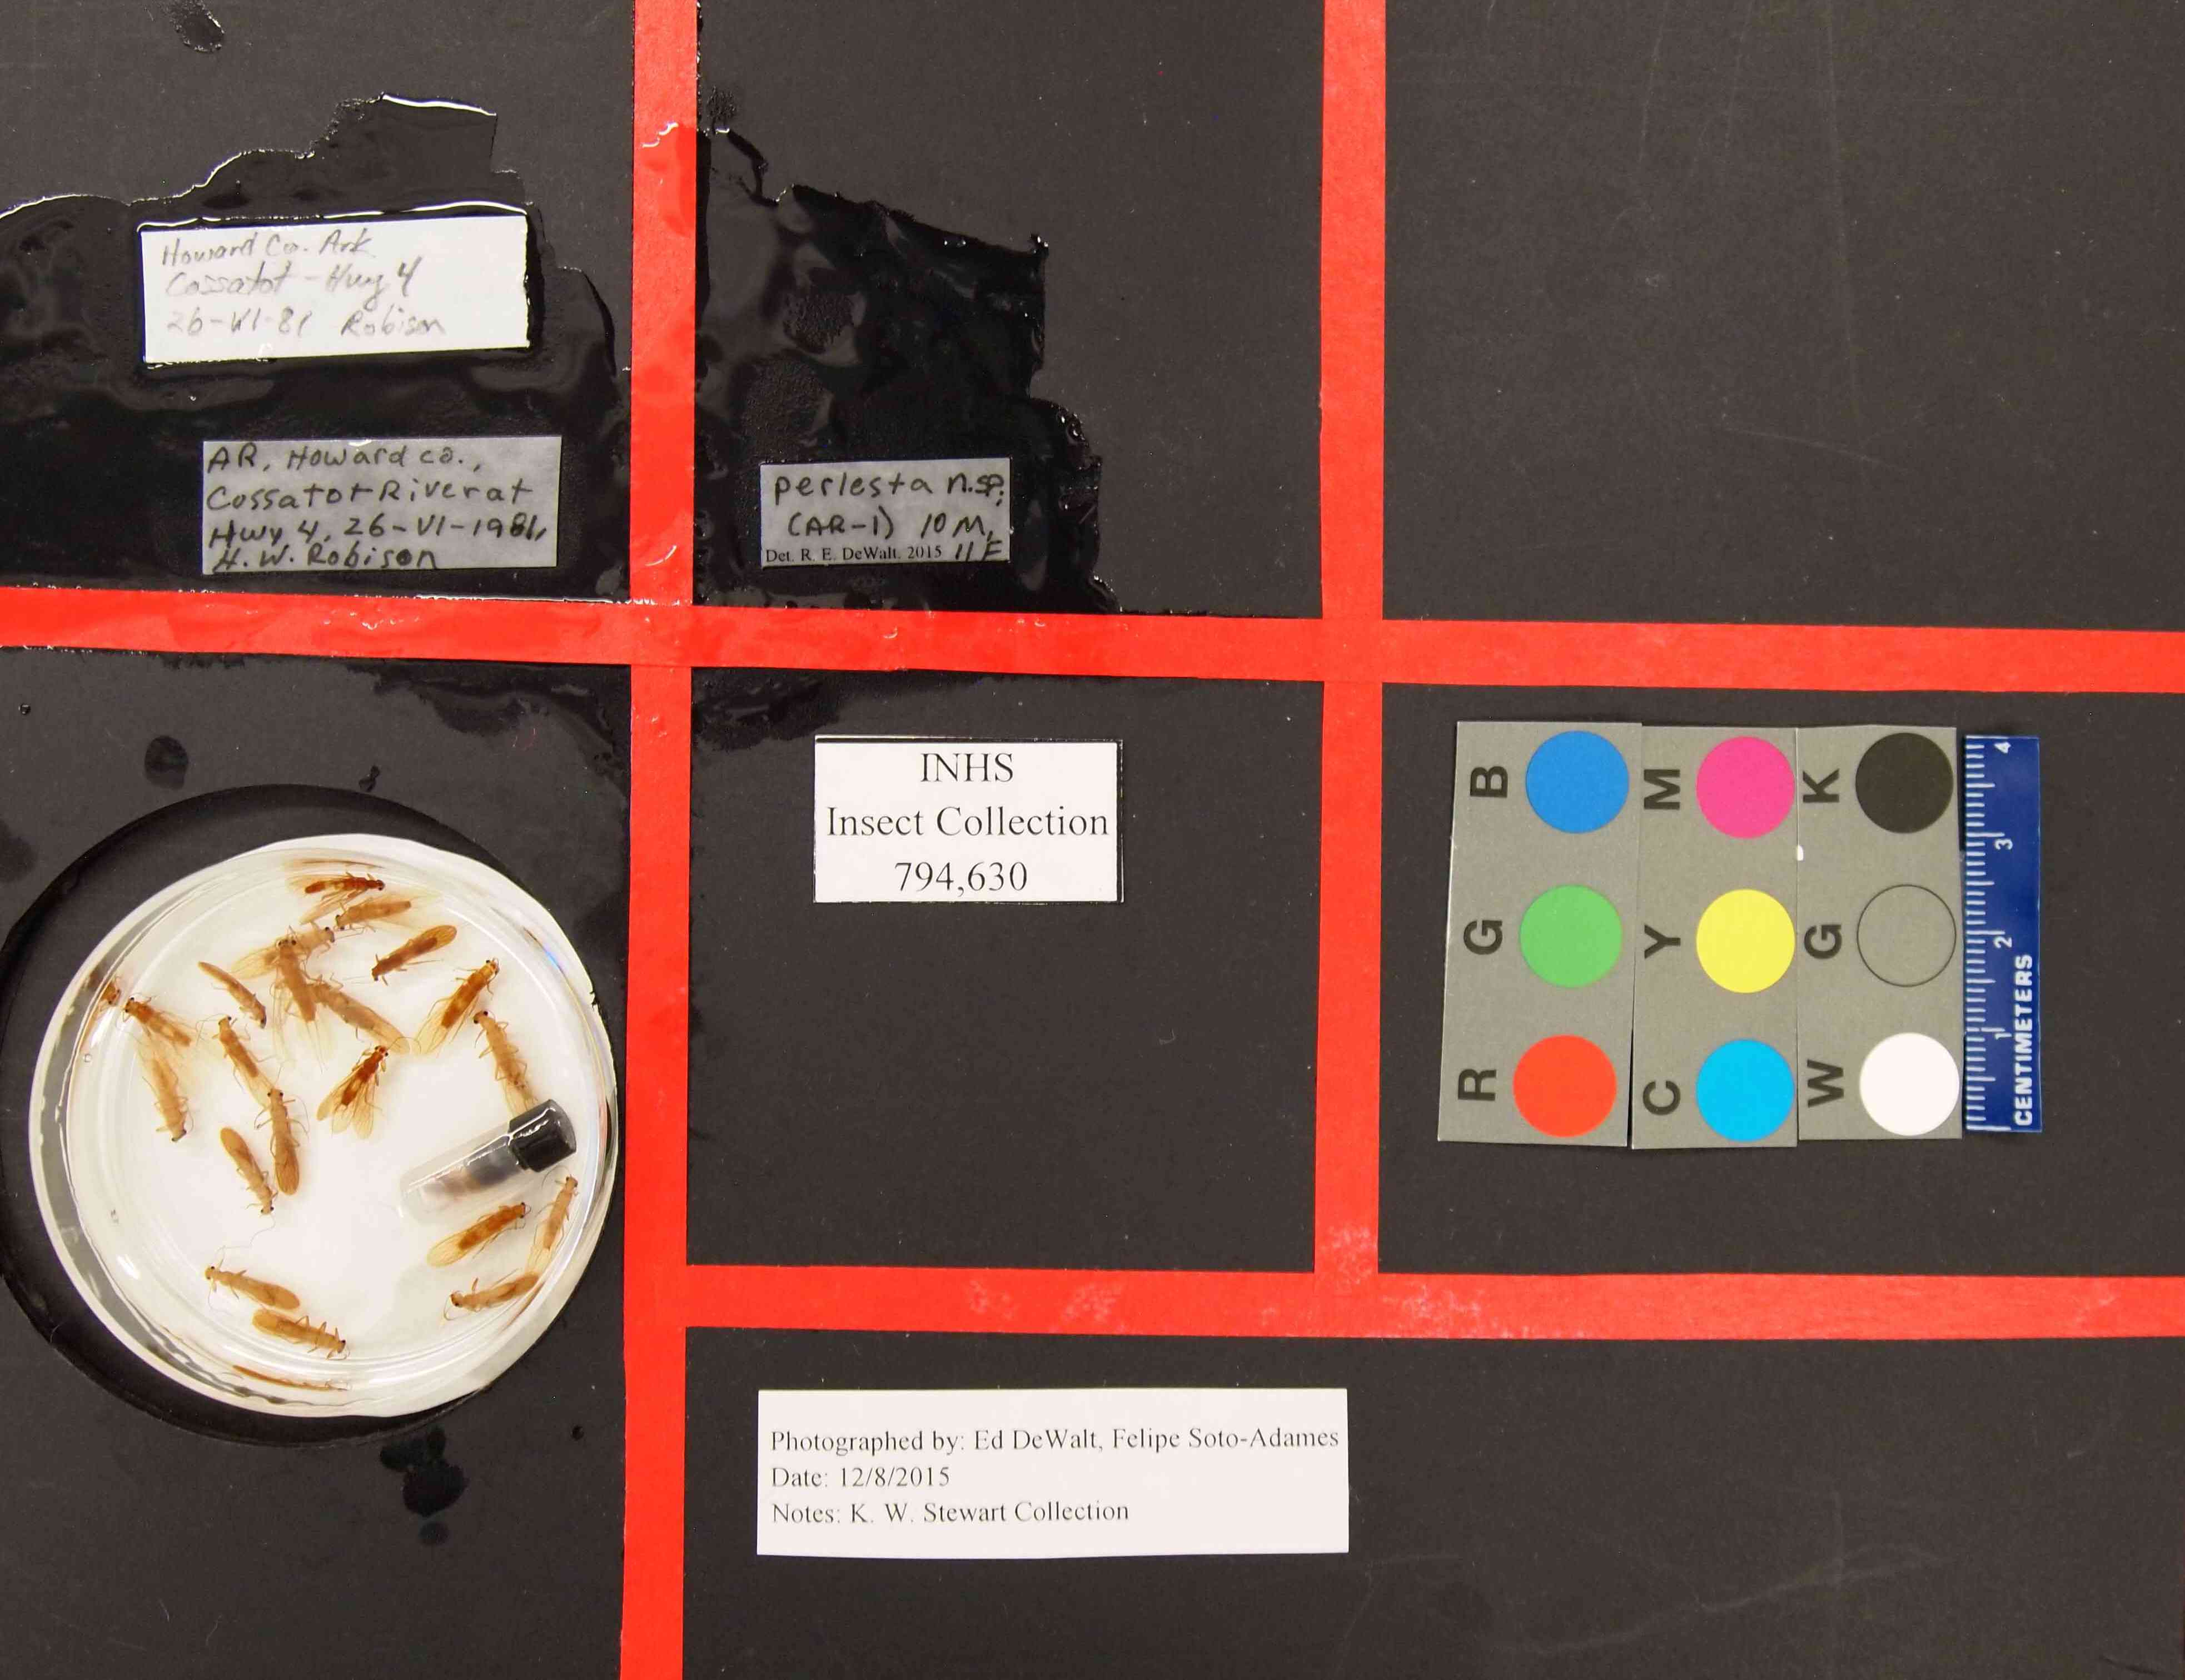 Howard Co. Ark
Cossatot - Hwy 4
26-VI-81 Robison
AR, Howard co.,
Cossatot River at
Hwy 4, 26-VI-1981,
H. W. Robison
perlesta n.sp.
(AR-1) 10 M,
Det. R. E. DeWalt. 2015 11 F
INHS
Insect Collection
794,630
B M K
G Y G
R C W
4
3
2
1
CENTIMETERS
Photographed by: Ed DeWalt, Felipe Soto-Adames
Date: 12/8/2015
Notes: K. W. Stewart Collection